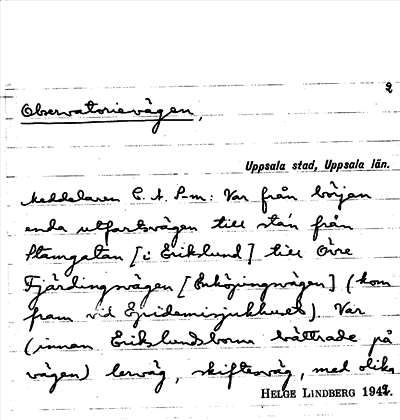 2
Observatorievägen,
Uppsala stad, Uppsala län.
Meddelaren C. A. S-m: Var från början
enda utfartsvägen till stan från
Stamgatan [i Erikslund] till Övre
Fjärdingsvägen [Enköpingsvägen] (kom
fram vid Epidemisjukhuset). Var
(innan Erikslundsborna bättrade på
vägen) lerväg, skiftesväg, med olika
HELGE LINDBERG 1942.